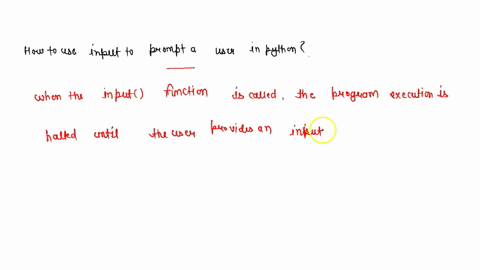 How to use input to prompt a user in python?.
when the input() function is called, the program execution is
halted until the user provides an input